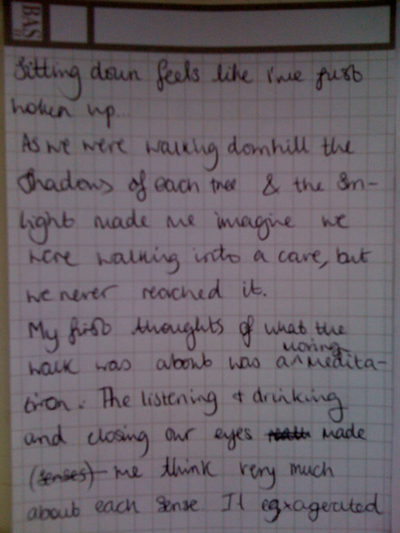 BAS
Sitting down feels like i've just
woken up...
As we were walking downhill the
shadows of each tree & the sun-
light made me imagine we
were walking into a cave, but
we never reached it.
My first thoughts of what the
moving
walk was about was a ^ medita-
tion. The listening + drinking
and closing our eyes made
(senses) me think very much
about each sense. It exagerated